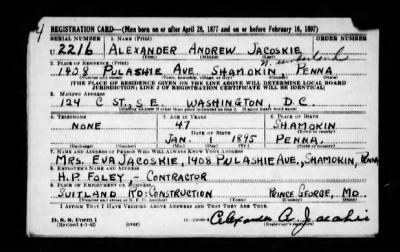 REGISTRATION CARD—(Men born on or after April 28, 1877 and on or before February 16, 1897)
SERIAL NUMBER 1. NAME (Print) ORDER NUMBER
U 2216 ALEXANDER ANDREW JACOSKIE
(First) (Middle) (Last)
Northumberland
2. PLACE OF RESIDENCE (Print)
1408 PULASHIE AVE. SHAMOKIN PENNA
(Number and street) (Town, township, village, or city) (County) (State)
[THE PLACE OF RESIDENCE GIVEN ON THE LINE ABOVE WILL DETERMINE LOCAL BOARD
JURISDICTION; LINE 2 OF REGISTRATION CERTIFICATE WILL BE IDENTICAL]
3. MAILING ADDRESS
124 C ST., S.E. WASHINGTON D.C.
[Mailing address if other than place indicated on line 2. If same insert word same]
4. TELEPHONE 5. AGE IN YEARS 6. PLACE OF BIRTH
NONE 47 SHAMOKIN
DATE OF BIRTH (Town or county)
JAN. 1 1895 PENNA.
(Exchange) (Number) (Mo.) (Day) (Yr.) (State or country)
7. NAME AND ADDRESS OF PERSON WHO WILL ALWAYS KNOW YOUR ADDRESS
MRS. EVA JACOSKIE, 1408 PULASHIE AVE., SHAMOKIN, PENNA
8. EMPLOYER'S NAME AND ADDRESS
H.P. FOLEY - CONTRACTOR
9. PLACE OF EMPLOYMENT OR BUSINESS
SUITLAND RD. CONSTRUCTION PRINCE GEORGE, MD.
(Number and street or R. F. D. number) (Town) (County) (State)
I AFFIRM THAT I HAVE VERIFIED ABOVE ANSWERS AND THAT THEY ARE TRUE.
D. S. S. Form 1
(Revised 4-1-42) (over) Alexander A. Jacoskie